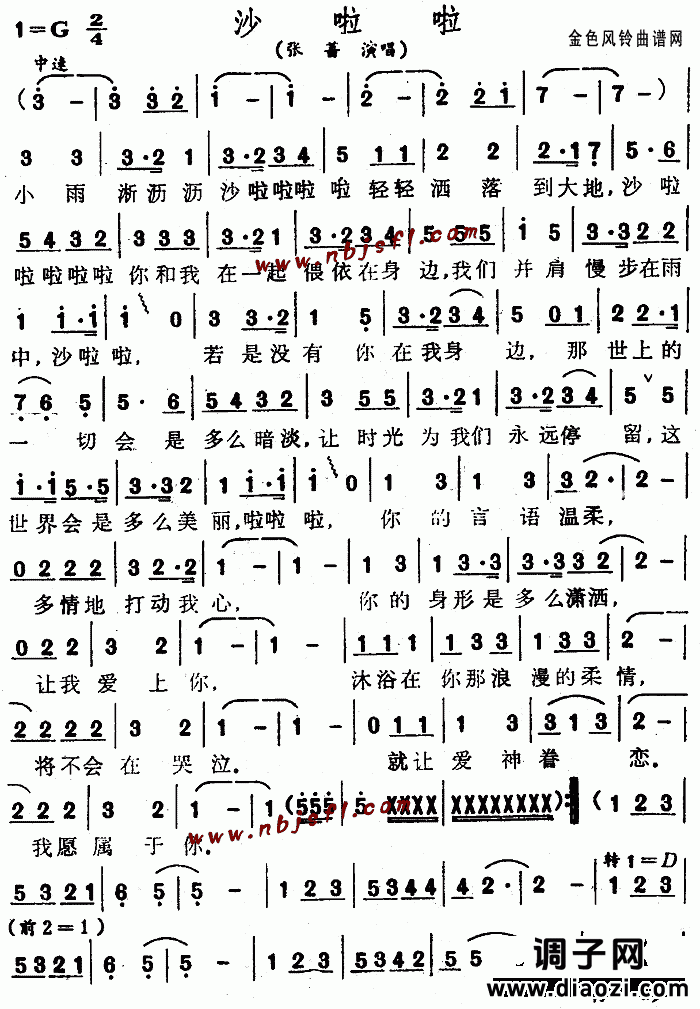 沙 啦 啦
1=G 2/4
(张蔷 演唱)
金色风铃曲谱网
中速
(3 - | 3 3 2 | 1 - | 1 - | 2 - | 2 2 1 | 7 - | 7 - )
3 3 | 3·2 1 | 3·2 3 4 | 5 1 1 | 2 2 | 2·1 7 | 5·6
小 雨 淅沥沥沙啦啦啦 啦轻轻 洒 落 到大地,沙啦
5 4 3 2 | 3 3 3 | 3·2 1 | 3·2 3 4 | 5 5 5 | 1 5 | 3·3 2 2
啦啦啦啦 你和我 在一起 偎依在身 边,我们 并肩 慢步在雨
www.nbjsfl.com
1 1·1 | 1 0 | 3 3·2 | 1 5 | 3·2 3 4 | 5 0 1 | 2 2·1
中,沙啦啦, 若 是没有 你在我身 边, 那 世上的
7 6 5 | 5·6 | 5 4 3 2 | 3 5 5 | 3·2 1 | 3·2 3 4 | 5 5
一 切会 是多么暗淡,让 时光 为我们 永远停 留,这
1·1 5·5 | 3·3 2 | 1 1·1 | 1 0 | 1 3 | 3·2 3 | 2 -
世界会是多么美 丽,啦啦 啦, 你 的 言语 温柔,
0 2 2 2 | 3 2·2 | 1 - | 1 - | 1 3 | 1 3·3 | 3·3 3 | 2 -
多情地 打动我 心, 你的 身形是多么潇洒,
0 2 2 | 3 2 | 1 - | 1 - | 1 1 1 | 1 3 3 | 1 3 3 3 | 2 -
让我 爱 上 你, 沐浴在 你那浪 漫的柔 情,
2 2 2 2 | 3 2 | 1 - | 1 - | 0 1 1 | 1 3 | 3 1 3 | 2 -
将不会在 哭泣. 就让 爱 神眷 恋.
2 2 2 | 3 2 | 1 - | 1 (5 5 5 | 5 XXXX | XXXXXXXX):‖ (1 2 3
我愿 属 于 你.
www.nbjsfl.com
转1=D
5 3 2 1 | 6 5 | 5 - | 1 2 3 | 5 3 4 4 | 4 2· | 2 - | 1 2 3
(前2=1)
5 3 2 1 | 6 5 | 5 - | 1 2 3 | 5 3 4 2 | 5 5
调子网
www.diaozi.com